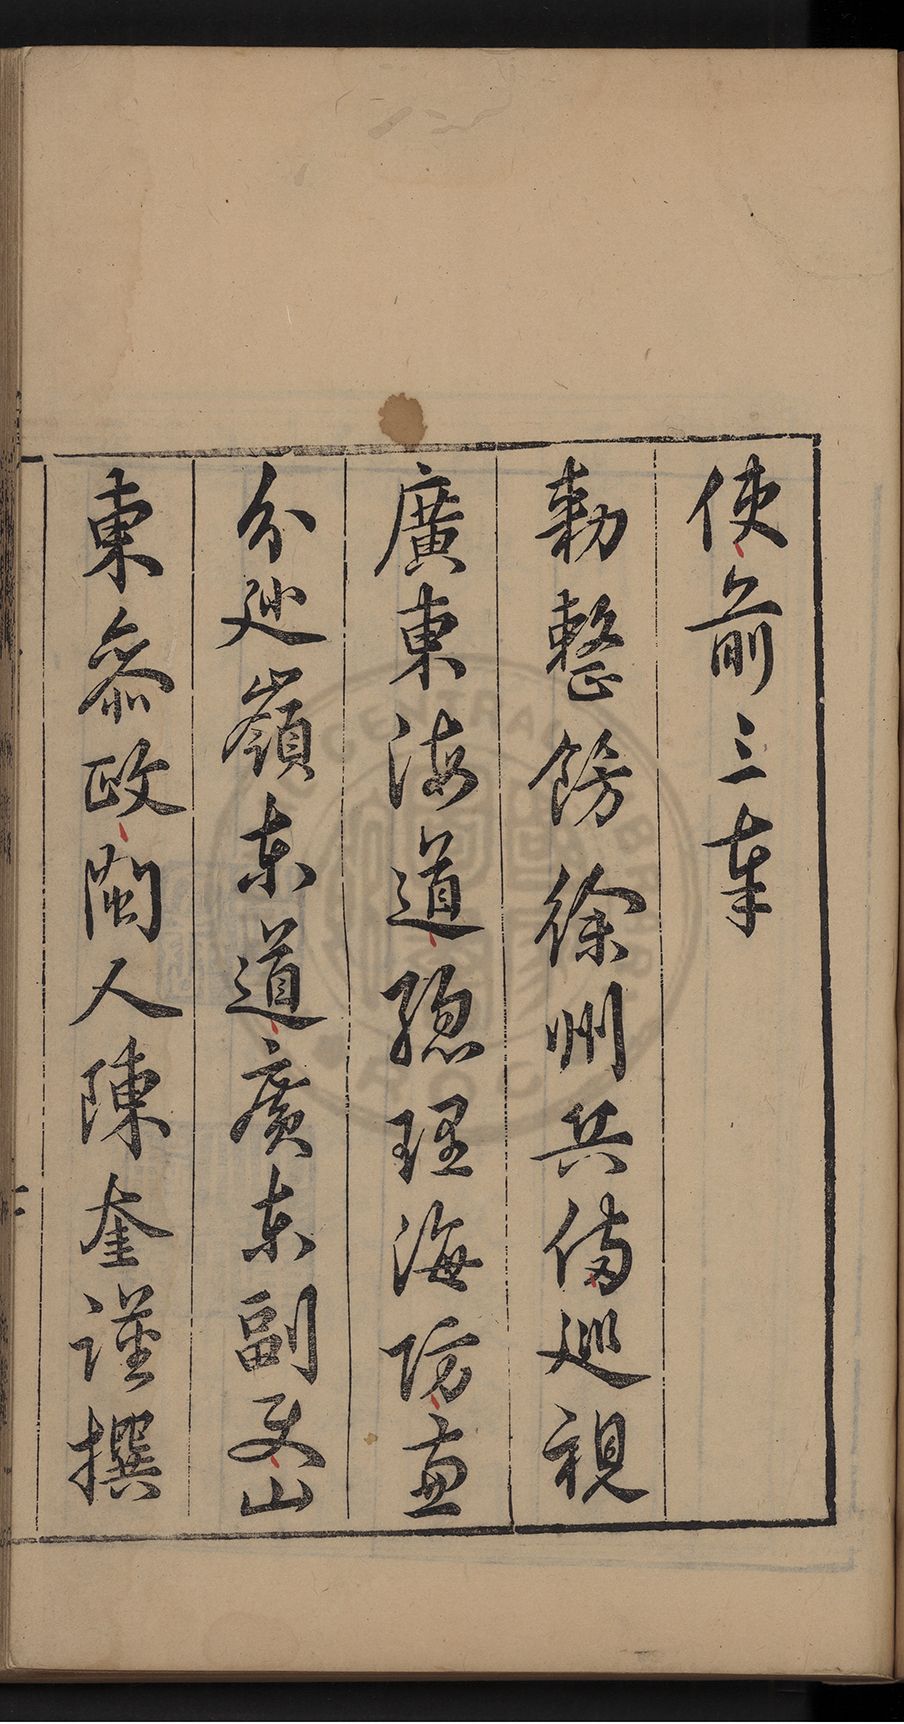 使前三奉
勅整飭徐州兵備巡視
廣東海道總理海防兼
分巡嶺東道廣東副史山
東參政閩人陳奎謹撰